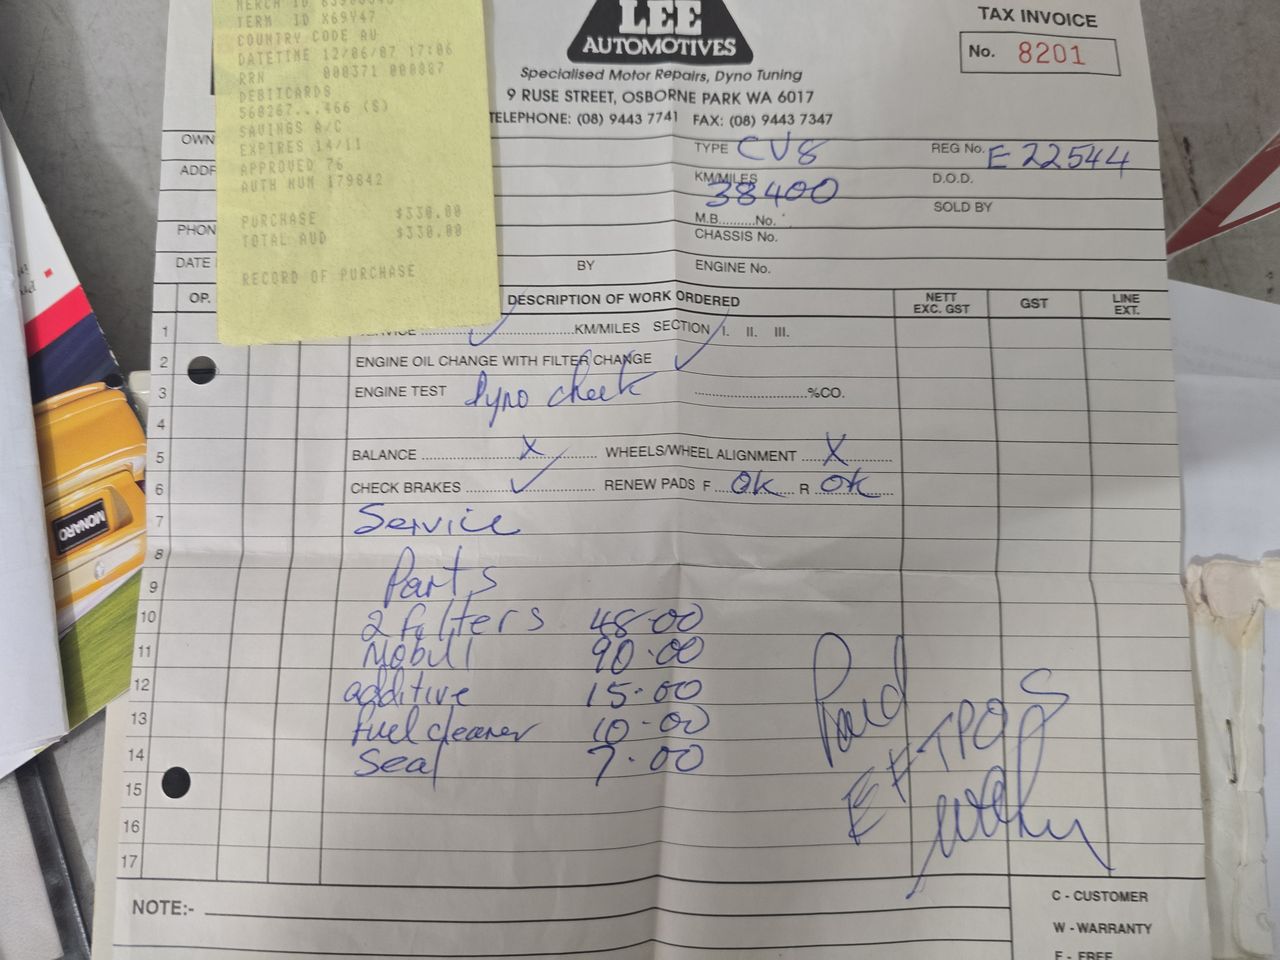 TERM ID X69Y47
COUNTRY CODE AU
DATETIME 12/06/07 17:06
RRN 000371 000887
DEBITCARDS
560267...466 (S)
SAVINGS A/C
EXPIRES 14/11
APPROVED 76
AUTH NUM 179842
PURCHASE $330.00
TOTAL AUD $330.00
RECORD OF PURCHASE
LEE
AUTOMOTIVES
Specialised Motor Repairs, Dyno Tuning
9 RUSE STREET, OSBORNE PARK WA 6017
TELEPHONE: (08) 9443 7741 FAX: (08) 9443 7347
TAX INVOICE
No. 8201
OWN
TYPE CV8
REG No. E 22544
ADDR
KM/MILES 38400
D.O.D.
M.B.........No.
SOLD BY
PHON
CHASSIS No.
DATE
BY
ENGINE No.
OP.
DESCRIPTION OF WORK ORDERED
NETT EXC. GST
GST
LINE EXT.
1 SERVICE KM/MILES SECTION I. II. III.
2 ENGINE OIL CHANGE WITH FILTER CHANGE
3 ENGINE TEST Dyno check %CO.
4
5 BALANCE X WHEELS/WHEEL ALIGNMENT X
6 CHECK BRAKES RENEW PADS F OK R OK
7 Service
8
9 Parts
10 2 filters 48.00
11 Mobil 1 90.00
12 additive 15.00
13 fuel cleaner 10.00
14 Seal 7.00
15
16
17
Paid
EFTPOS
NOTE:-
C - CUSTOMER
W - WARRANTY
F - FREE
MONARO